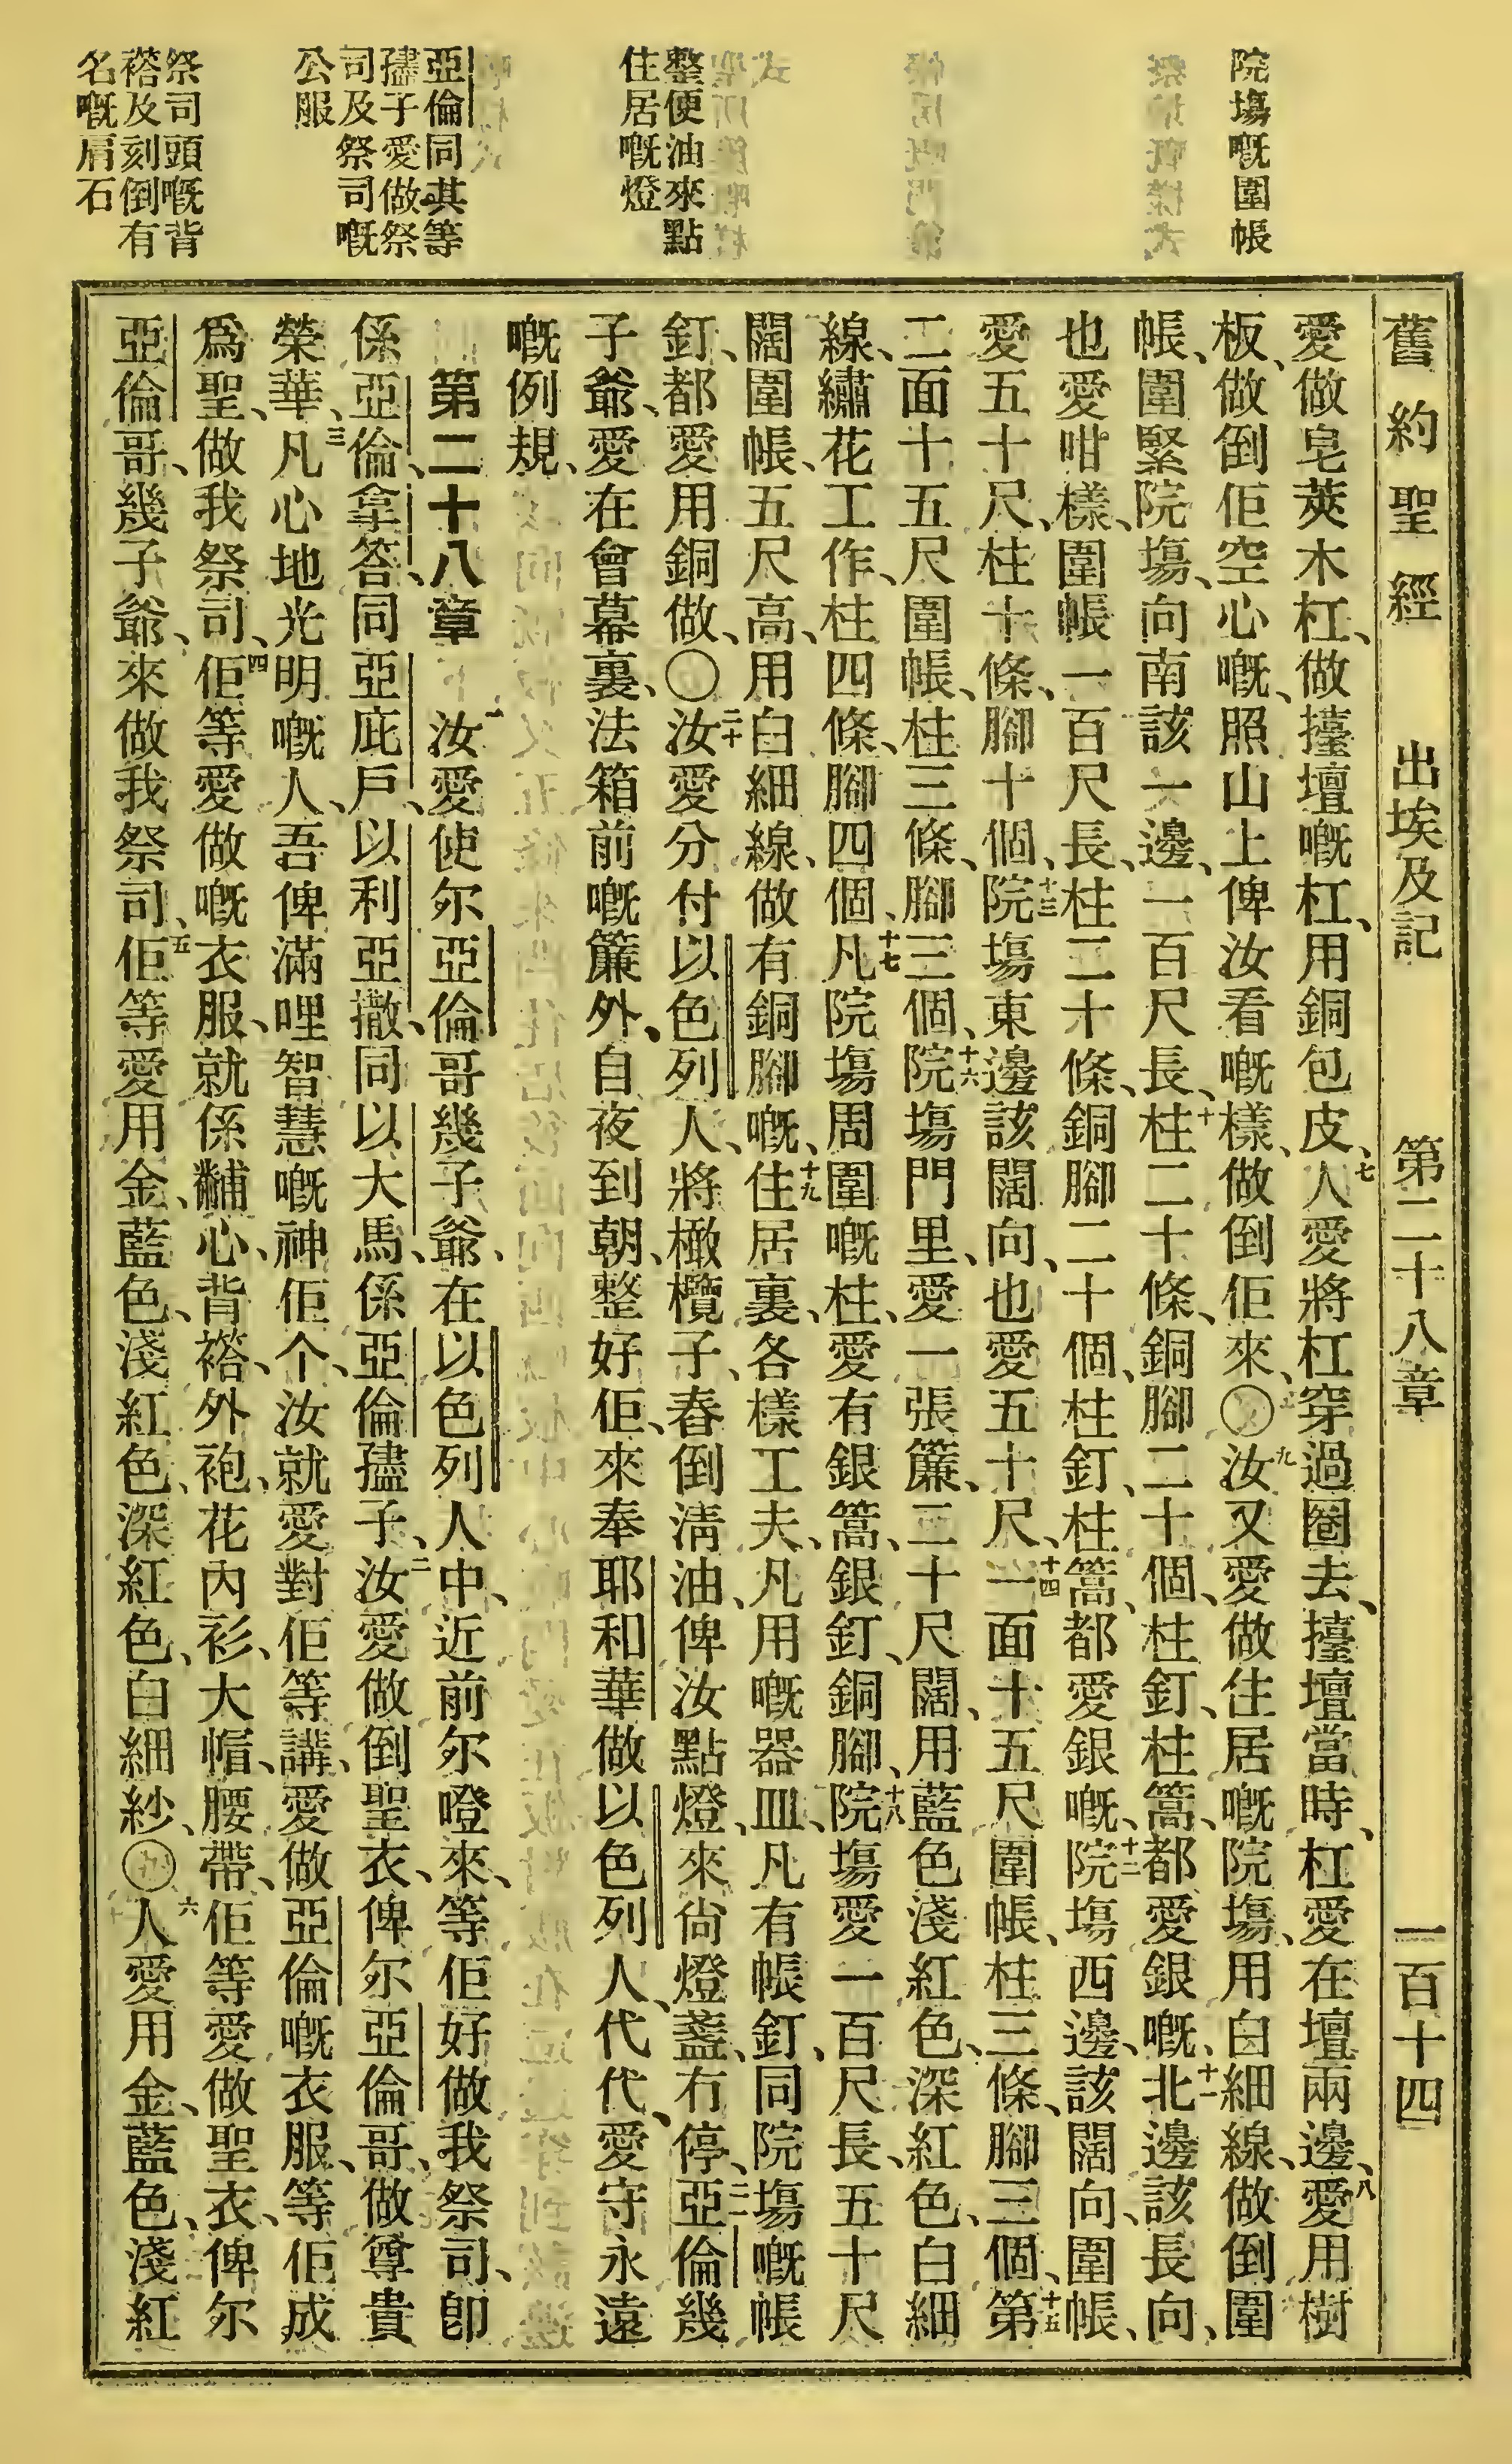 舊約聖經 出埃及記 第二十八章 一百十四
院塲嘅圍帳
整便油來點
住居嘅燈
亞倫同其等
𡥧子愛做祭
司及祭司嘅
公服
祭司頭嘅背
褡及刻倒有
名嘅肩石
愛做皂莢木杠、做擡壇嘅杠、用銅包皮、七人愛將杠穿過圈去、擡壇當時、杠愛在壇兩邊、八愛用樹
板、做倒佢空心嘅、照山上俾汝看嘅樣、做倒佢來、〇九汝又愛做住居嘅院塲、用白細線、做倒圍
帳、圍緊院塲、向南該一邊、一百尺長、十柱二十條、銅腳二十個、柱釘、柱篙、都愛銀嘅、十一北邊該長向、
也愛咁樣、圍帳一百尺長、柱二十條、銅腳二十個、柱釘、柱篙、都愛銀嘅、十二院塲西邊、該闊向、圍帳、
愛五十尺、柱十條、腳十個、十三院塲東邊該闊向、也愛五十尺、十四一面十五尺圍帳、柱三條、腳三個、十五第
二面十五尺圍帳、柱三條、腳三個、十六院塲門里、愛一張簾、二十尺闊、用藍色淺紅色、深紅色、白細
線、繡花工作、柱四條、腳四個、十七凡院塲周圍嘅柱、愛有銀篙、銀釘、銅腳、十八院塲愛一百尺長、五十尺
闊圍帳、五尺高、用白細線、做有銅腳嘅、十九住居裏、各樣工夫、凡用嘅器皿、凡有帳釘、同院塲嘅帳
釘、都愛用銅做、〇二十汝愛分付以色列人、將橄欖子、舂倒淸油、俾汝點燈、來尙燈盞、冇停、二一亞倫幾
子爺、愛在會幕裏、法箱前嘅簾外、自夜到朝、整好佢、來奉耶和華、做以色列人、代代、愛守永遠
嘅例規、
第二十八章 一汝愛使尔亞倫哥幾子爺、在以色列人中、近前尔嶝來、等佢好做我祭司、卽
係亞倫、拿答、同亞庇戶、以利亞撒、同以大馬、係亞倫𡥧子、二汝愛做倒聖衣、俾尔亞倫哥、做尊貴
榮華、三凡心地光明嘅人、吾俾滿哩智慧嘅神佢个、汝就愛對佢等講、愛做亞倫嘅衣服、等佢成
爲聖、做我祭司、四佢等愛做嘅衣服、就係黼心、背褡、外袍、花內衫、大帽、腰帶、佢等愛做聖衣、俾尔
亞倫哥、幾子爺、來做我祭司、五佢等愛用金、藍色、淺紅色、深紅色、白細紗、〇六人愛用金、藍色、淺紅